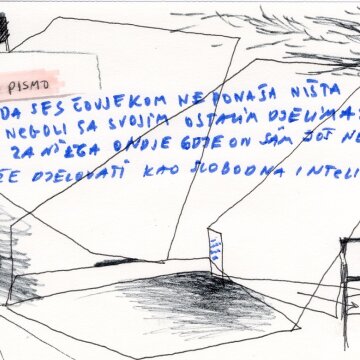 PISMO
DA SES ČOVJEKOM NE PONAŠA NIŠTA
NEGOLI SA SVOJIM OSTALIM DJELIMA
ZA NJEGA ONDJE GDJE ON SÂM JOŠ NE
DJELOVATI KAO SLOBODNA INTELI